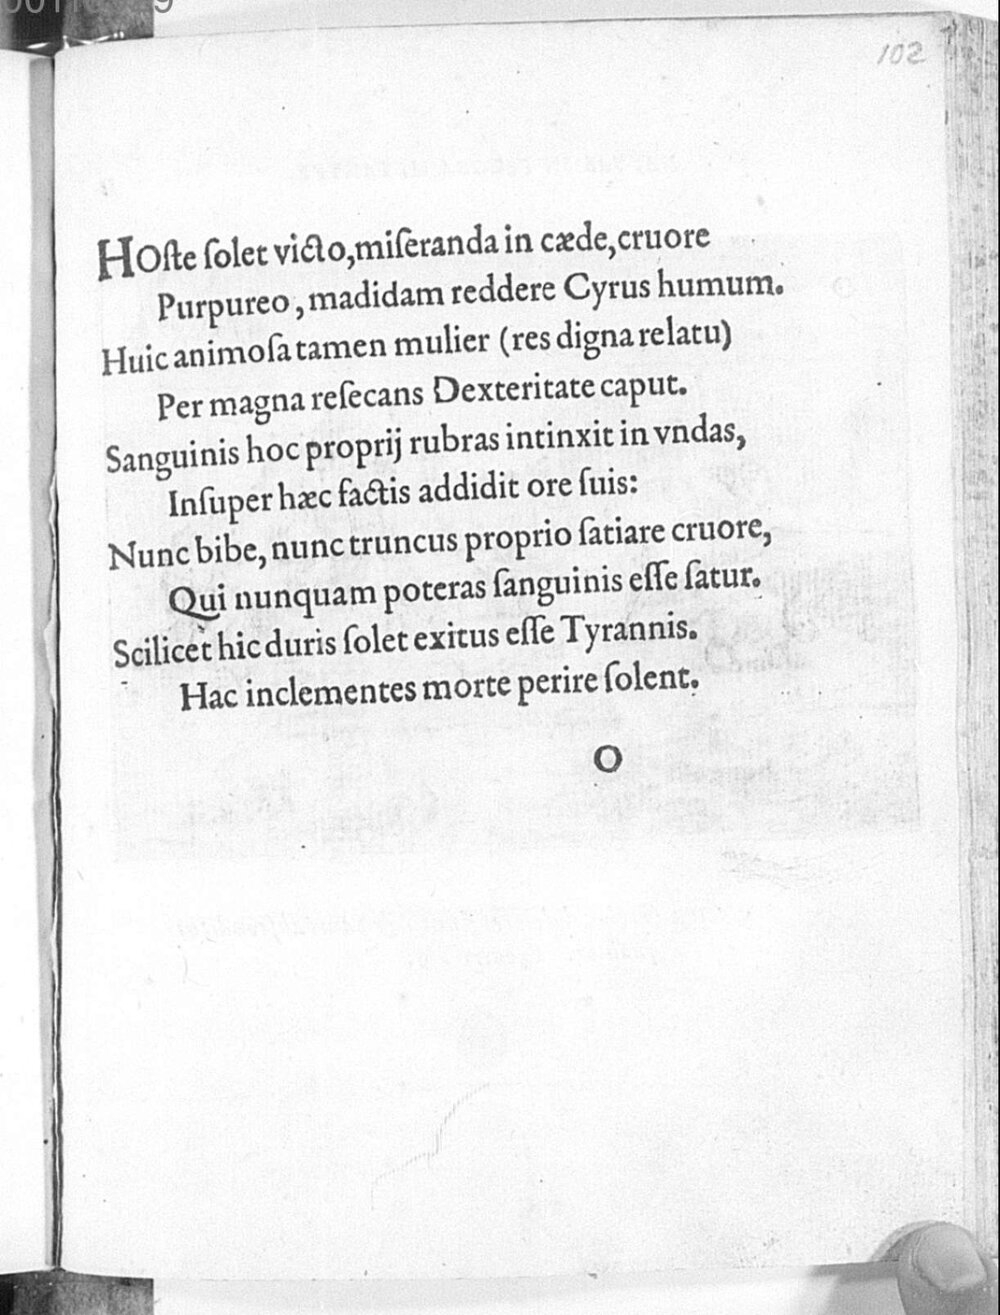 102
HOſte ſolet victo, miſeranda in cæde, cruore
Purpureo, madidam reddere Cyrus humum.
Huic animoſa tamen mulier (res digna relatu)
Per magna reſecans Dexteritate caput.
Sanguinis hoc proprij rubras intinxit in vndas,
Inſuper hæc factis addidit ore ſuis:
Nunc bibe, nunc truncus proprio ſatiare cruore,
Qui nunquam poteras ſanguinis eſſe ſatur.
Scilicèt hic duris ſolet exitus eſſe Tyrannis.
Hac inclementes morte perire ſolent.
O